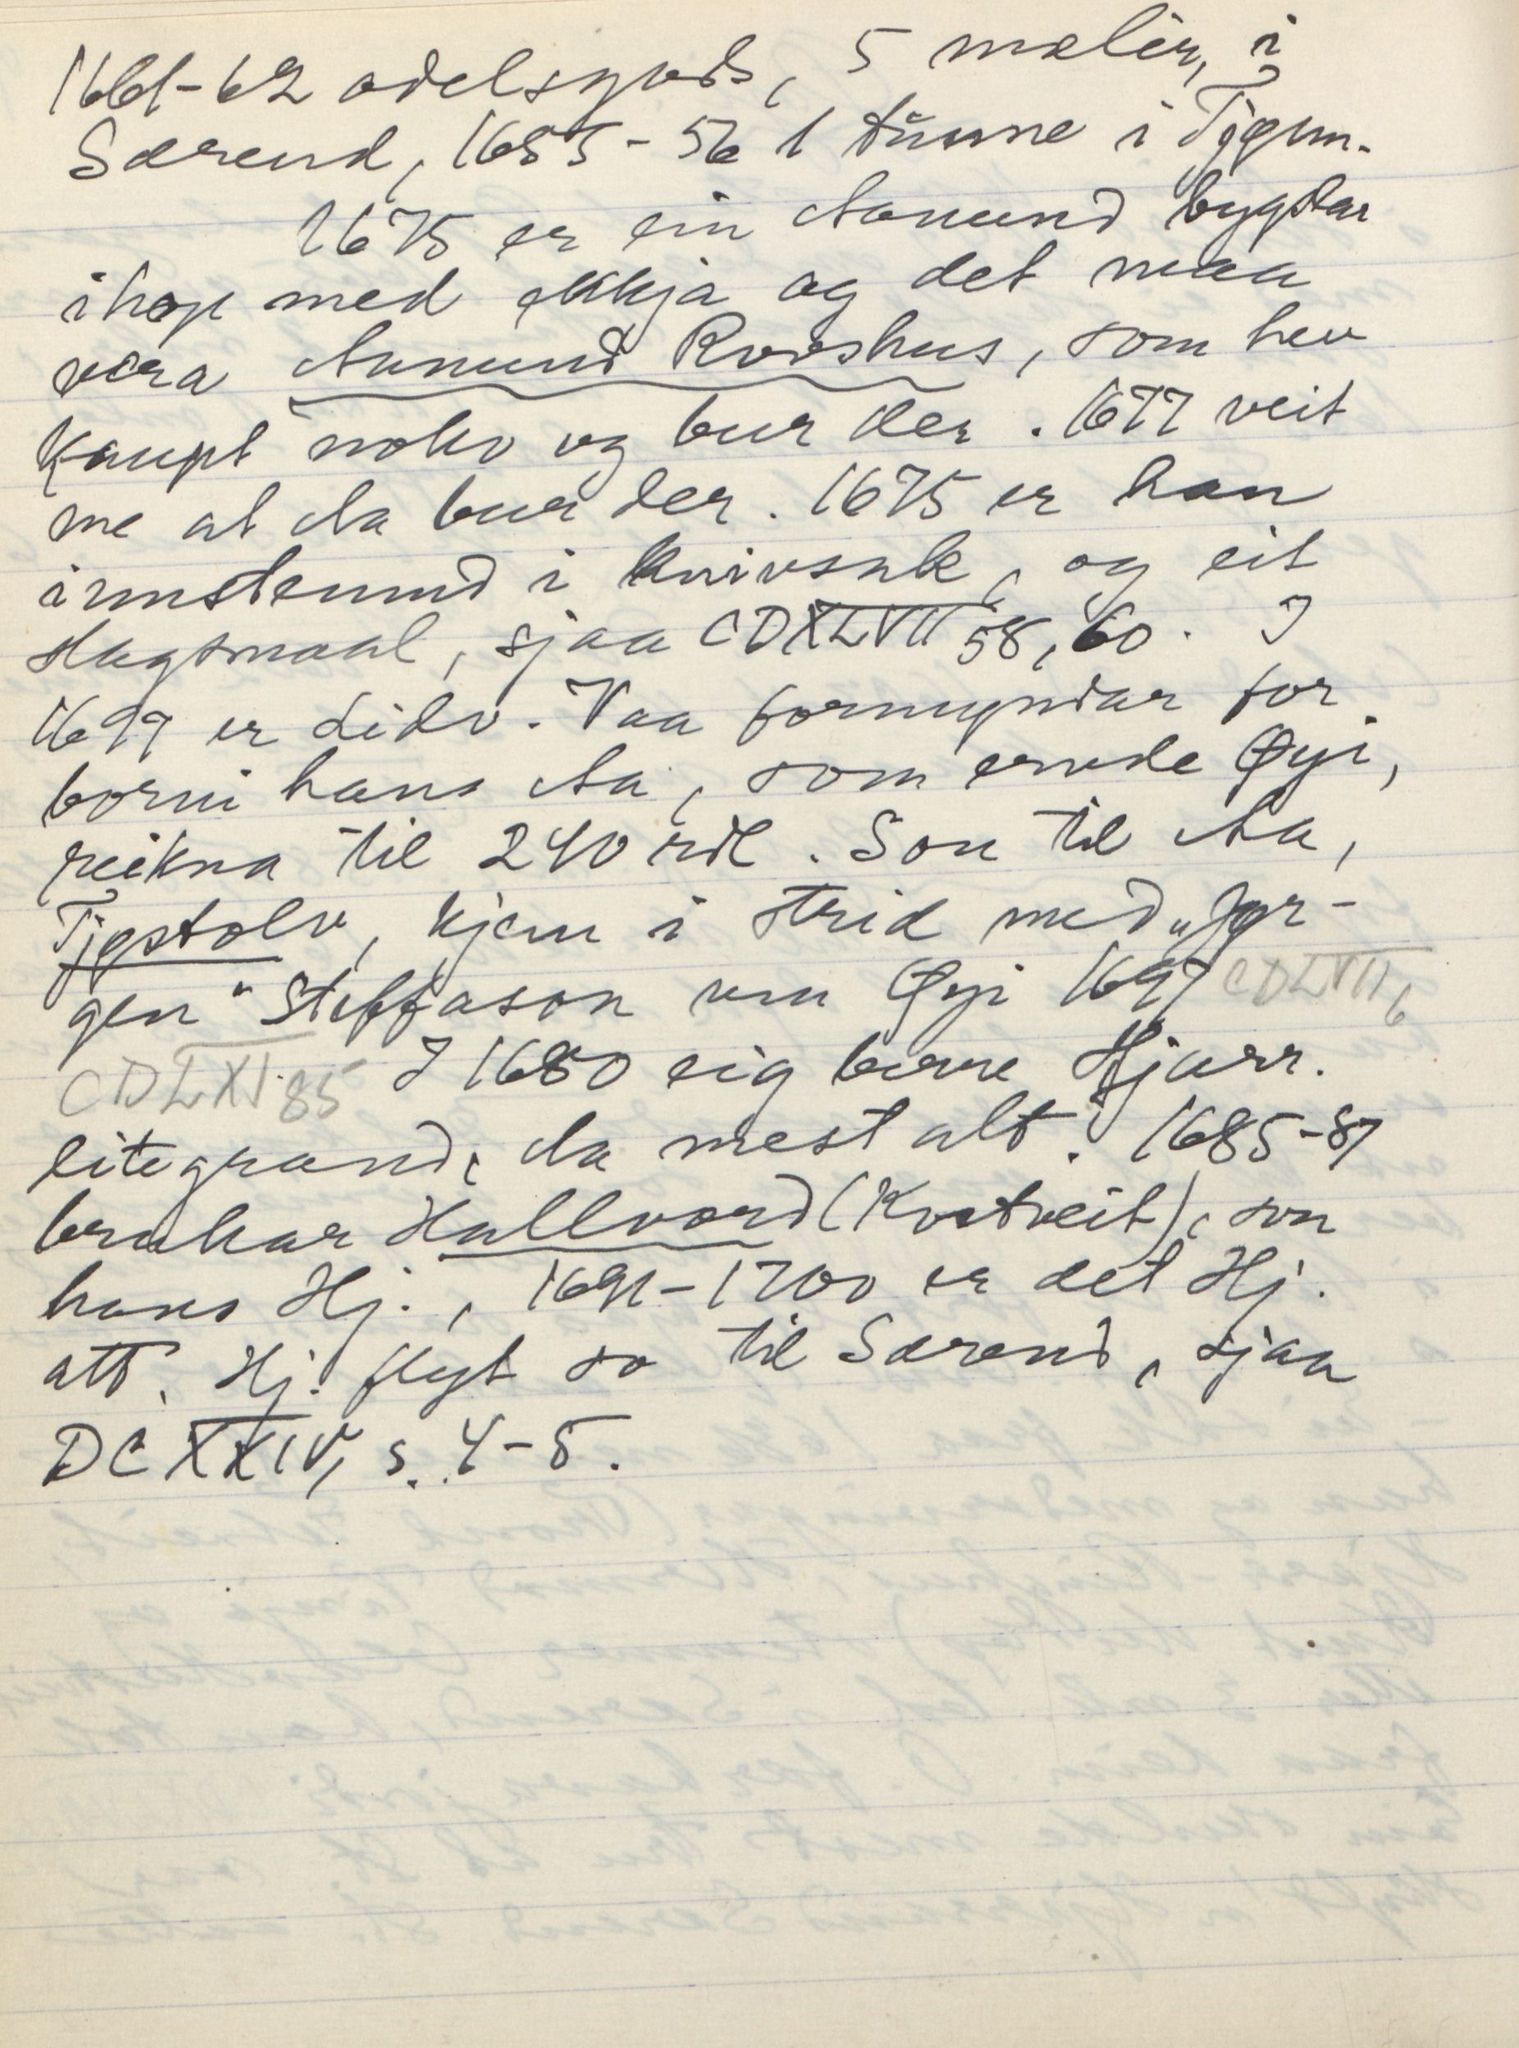 1661-62 odelsgods, 5 mæler, i
Særend, 1655-56 1 tunne i Tjønn.
1675 er ein Aanund bygslar
ihop med ekkja og det maa
vera Aanund Rovshus, som hev
kaupt noko og bur der. 1677 veit
me at Aa bur der. 1675 er han
innstemnd i knivsak, og eit
slagsmaal, sjaa CDXLVII 58, 60. I
1699 er Lidv. Vaa formyndar for
borni hans Aa, som ervde Øyi,
reikna til 240 rdl. Son til Aa,
Tjøstolv, kjem i strid med „Jør-
gen“ Steffason um Øyi 1697 CDLVII, 6
CDLXI 85 I 1680 eig berre Hjarr.
litegrand, Aa mest alt. 1685-87
brukar Hallvord (Kvotveit), son
hans Hj., 1691-1700 er det Hj.
att. Hj. flyt so til Særend, sjaa
DCXXIV, s. 4-5.